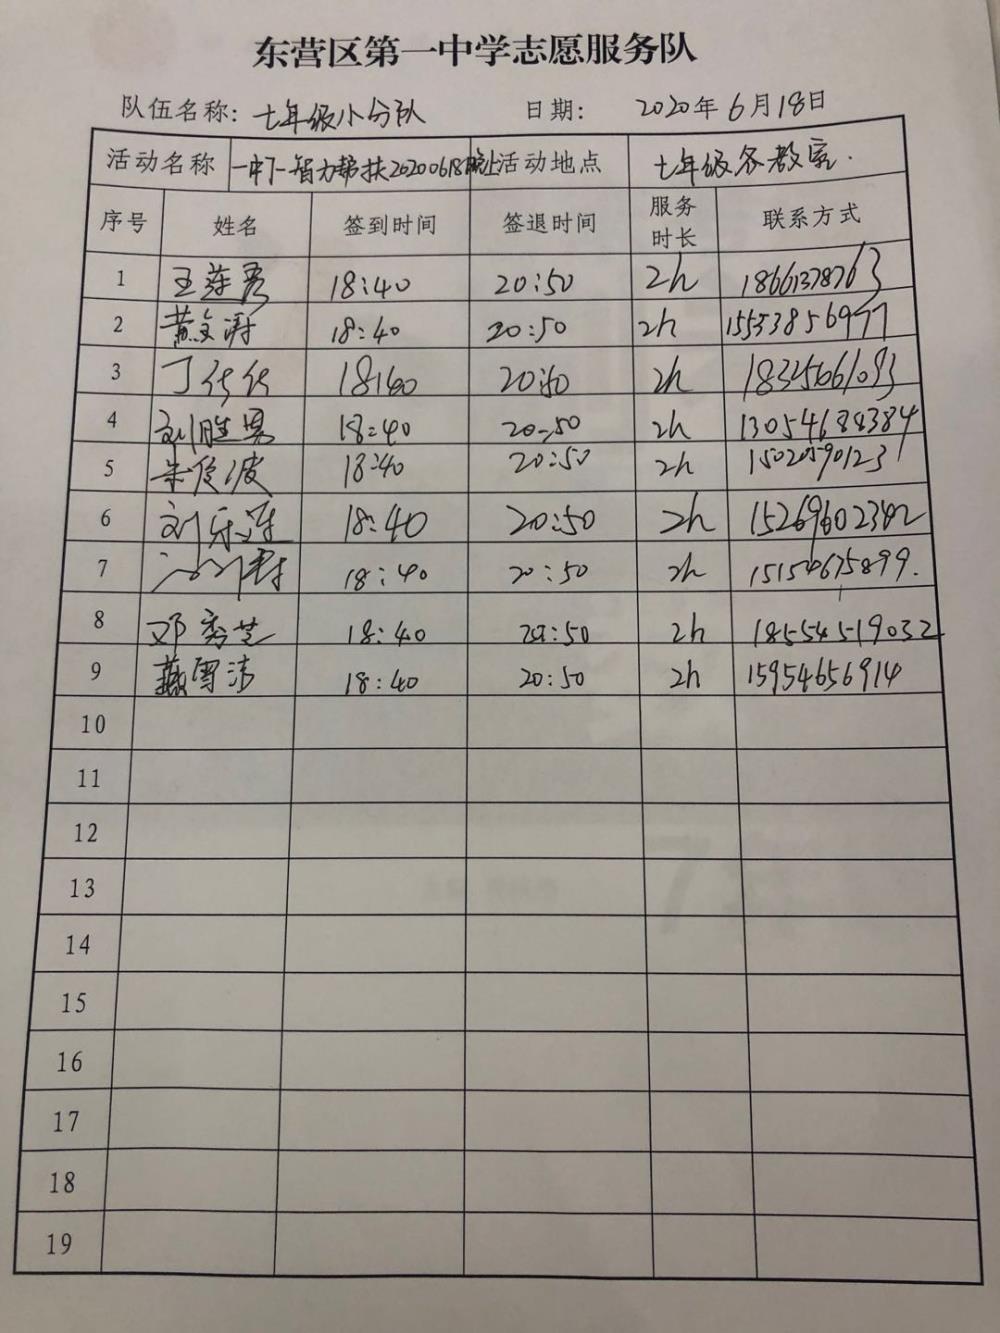 东营区第一中学志愿服务队
队伍名称: 七年级小分队 日期: 2020年6月18日
活动名称 一中7-智力帮扶20200618晚上 活动地点 七年级各教室.
序号 姓名 签到时间 签退时间 服务时长 联系方式
1 王莲 18:40 20:50 2h 18661378763
2 黄文涛 18:40 20:50 2h 15553856977
3 丁 18:40 20:50 2h
4 刘胜男 18:40 20:50 2h 13054688384
5 朱俊波 18:40 20:50 2h 15020590123
6 刘乐莲 18:40 20:50 2h 15269602382
7 18:40 20:50 2h 15154675899.
8 邓秀芝 18:40 20:50 2h 18554519032
9 燕雪沛 18:40 20:50 2h 15954656914
10
11
12
13
14
15
16
17
18
19